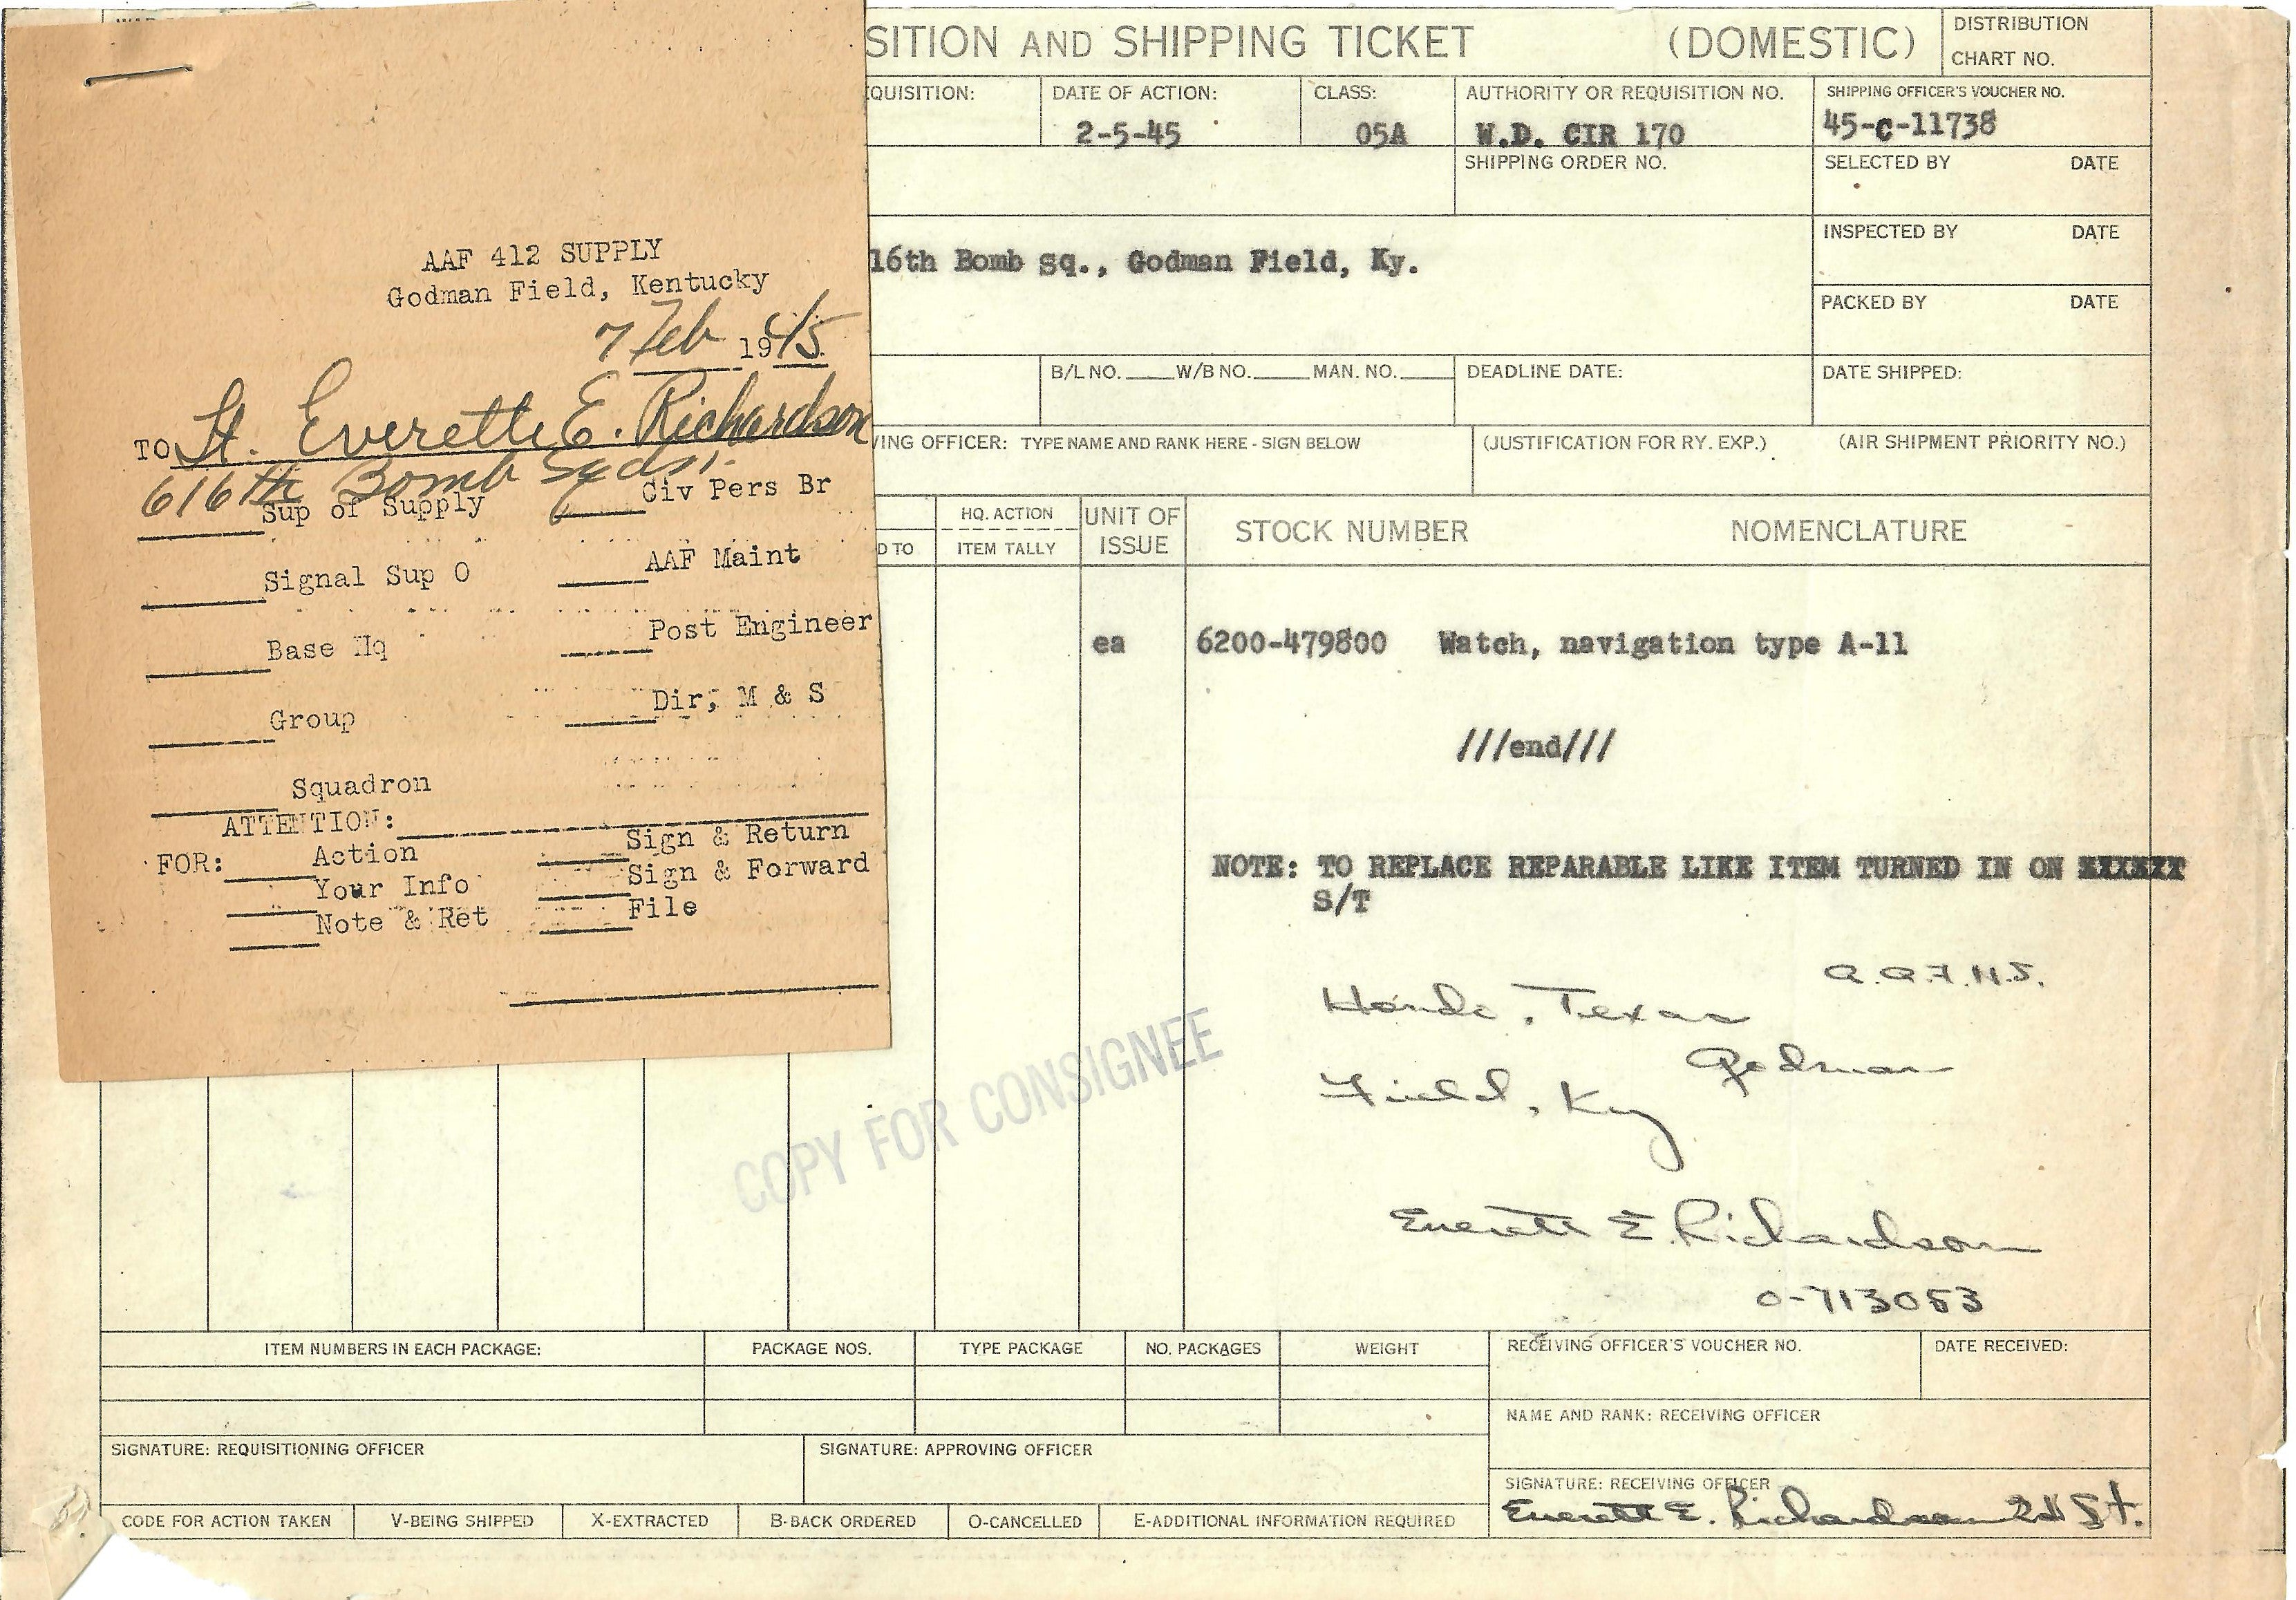 AAF 412 SUPPLY
Godman Field, Kentucky
7 Feb 1945
TO Lt. Everette E. Richardson
616th Bomb Sqdn.
Sup of Supply Civ Pers Br
Signal Sup O AAF Maint
Base Hq Post Engineer
Group Dir, M & S
Squadron
ATTENTION:
FOR: Action Sign & Return
Your Info Sign & Forward
Note & Ret File
SITION AND SHIPPING TICKET (DOMESTIC)
DISTRIBUTION
CHART NO.
QUISITION:
DATE OF ACTION:
2-5-45
CLASS:
05A
AUTHORITY OR REQUISITION NO.
W.D. CIR 170
SHIPPING OFFICER'S VOUCHER NO.
45-C-11738
SHIPPING ORDER NO.
SELECTED BY DATE
16th Bomb Sq., Godman Field, Ky.
INSPECTED BY DATE
PACKED BY DATE
B/L NO. W/B NO. MAN. NO.
DEADLINE DATE:
DATE SHIPPED:
VING OFFICER: TYPE NAME AND RANK HERE - SIGN BELOW
(JUSTIFICATION FOR RY. EXP.) (AIR SHIPMENT PRIORITY NO.)
D TO
HQ. ACTION
ITEM TALLY
UNIT OF
ISSUE
STOCK NUMBER NOMENCLATURE
ea 6200-479800 Watch, navigation type A-11
///end///
NOTE: TO REPLACE REPARABLE LIKE ITEM TURNED IN ON
S/T
A.A.F.N.S.
Hondo, Texas
Godman
Field, Ky
Everett E. Richardson
O-713053
COPY FOR CONSIGNEE
ITEM NUMBERS IN EACH PACKAGE: PACKAGE NOS. TYPE PACKAGE NO. PACKAGES WEIGHT
RECEIVING OFFICER'S VOUCHER NO. DATE RECEIVED:
NAME AND RANK: RECEIVING OFFICER
SIGNATURE: REQUISITIONING OFFICER SIGNATURE: APPROVING OFFICER
SIGNATURE: RECEIVING OFFICER
Everett E. Richardson 2d Lt.
CODE FOR ACTION TAKEN V-BEING SHIPPED X-EXTRACTED B-BACK ORDERED O-CANCELLED E-ADDITIONAL INFORMATION REQUIRED